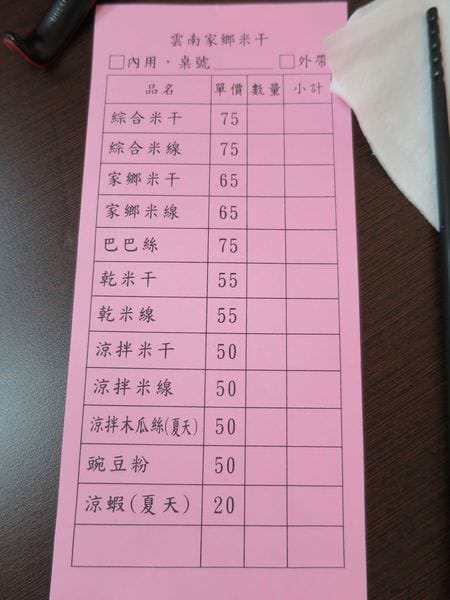 雲南家鄉米干
□內用，桌號______ □外帶
品名 單價 數量 小計
綜合米干 75
綜合米線 75
家鄉米干 65
家鄉米線 65
巴巴絲 75
乾米干 55
乾米線 55
涼拌米干 50
涼拌米線 50
涼拌木瓜絲(夏天) 50
豌豆粉 50
涼蝦(夏天) 20